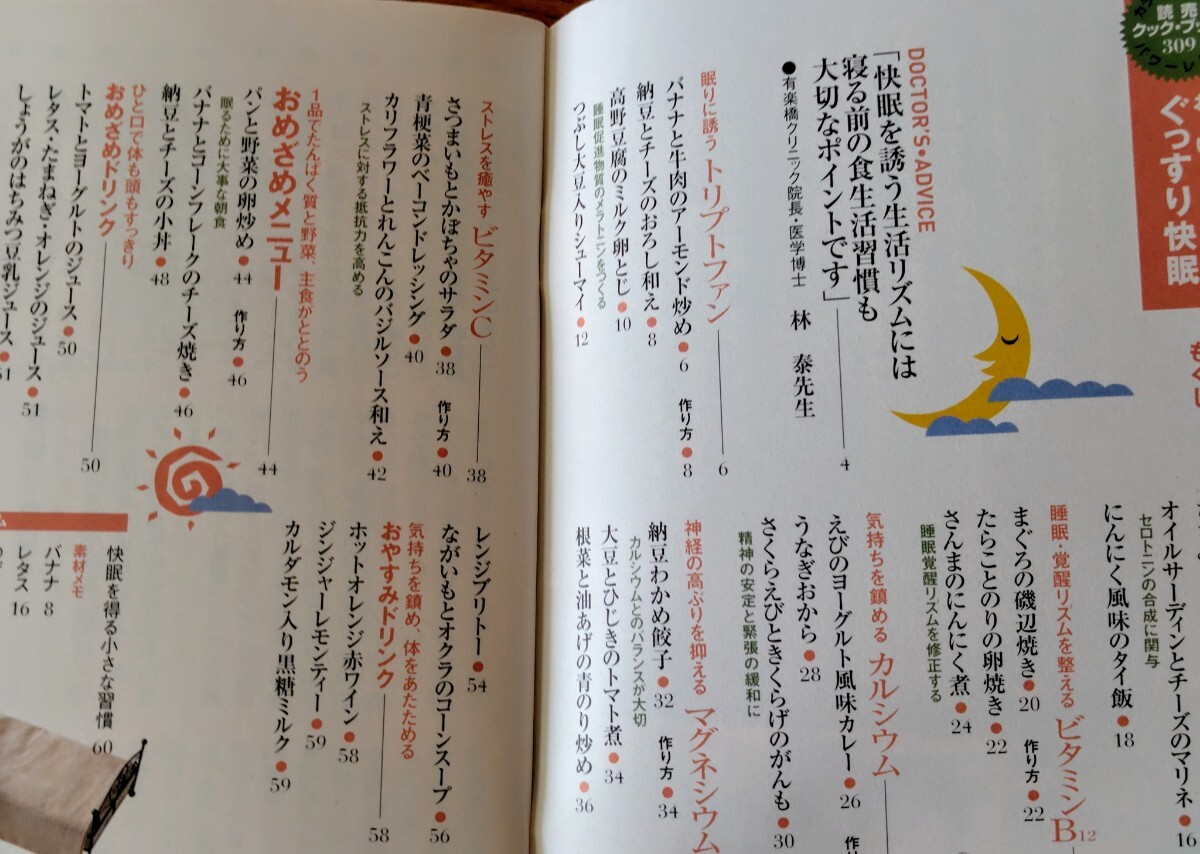 読売
クック・ブッ
309
ぐっすり快眠
もくじ
DOCTOR'S・ADVICE
「快眠を誘う生活リズムには
寝る前の食生活習慣も
大切なポイントです」
4
●有楽橋クリニック院長・医学博士 林 泰先生
眠りに誘う トリプトファン
6
バナナと牛肉のアーモンド炒め●6 作り方●8
納豆とチーズのおろし和え●8
高野豆腐のミルク卵とじ●10
睡眠促進物質のメラトニンをつくる
つぶし大豆入りシューマイ●12
オイルサーディンとチーズのマリネ●16
セロトニンの合成に関与
にんにく風味のタイ飯●18
睡眠・覚醒リズムを整える ビタミンB12
まぐろの磯辺焼き●20 作り方●22
たらことのりの卵焼き●22
さんまのにんにく煮●24
睡眠覚醒リズムを修正する
気持ちを鎮める カルシウム
えびのヨーグルト風味カレー●26
うなぎおから●28
さくらえびときくらげのがんも●30
精神の安定と緊張の緩和に
神経の高ぶりを抑える マグネシウム
納豆わかめ餃子●32 作り方●34
カルシウムとのバランスが大切
大豆とひじきのトマト煮●34
根菜と油あげの青のり炒め●36
ストレスを癒やす ビタミンC
38
さつまいもとかぼちゃのサラダ●38 作り方●40
青梗菜のベーコンドレッシング●40
カリフラワーとれんこんのバジルソース和え●42
ストレスに対する抵抗力を高める
1品でたんぱく質と野菜、主食がととのう
おめざめメニュー
44
パンと野菜の卵炒め●44 作り方●46
眠るために大事な朝食
バナナとコーンフレークのチーズ焼き●46
納豆とチーズの小丼●48
ひと口で体も頭もすっきり
おめざめドリンク
50
トマトとヨーグルトのジュース●50
レタス・たまねぎ・オレンジのジュース●51
しょうがのはちみつ豆乳ジュース●51
レンジブリトー●54
ながいもとオクラのコーンスープ●56
気持ちを鎮め、体をあたためる
おやすみドリンク
58
ホットオレンジ赤ワイン●58
ジンジャーレモンティー●59
カルダモン入り黒糖ミルク●59
快眠を得る小さな習慣 60
素材メモ
バナナ 8
レタス 16